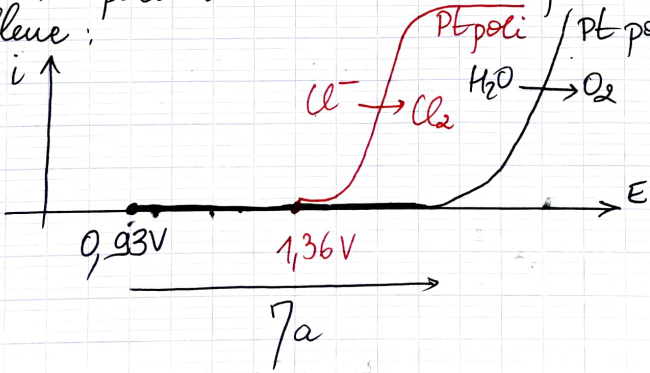 i
Pt poli
Pt
Cl⁻ → Cl₂
H₂O → O₂
E
0,93V
1,36 V
ηa